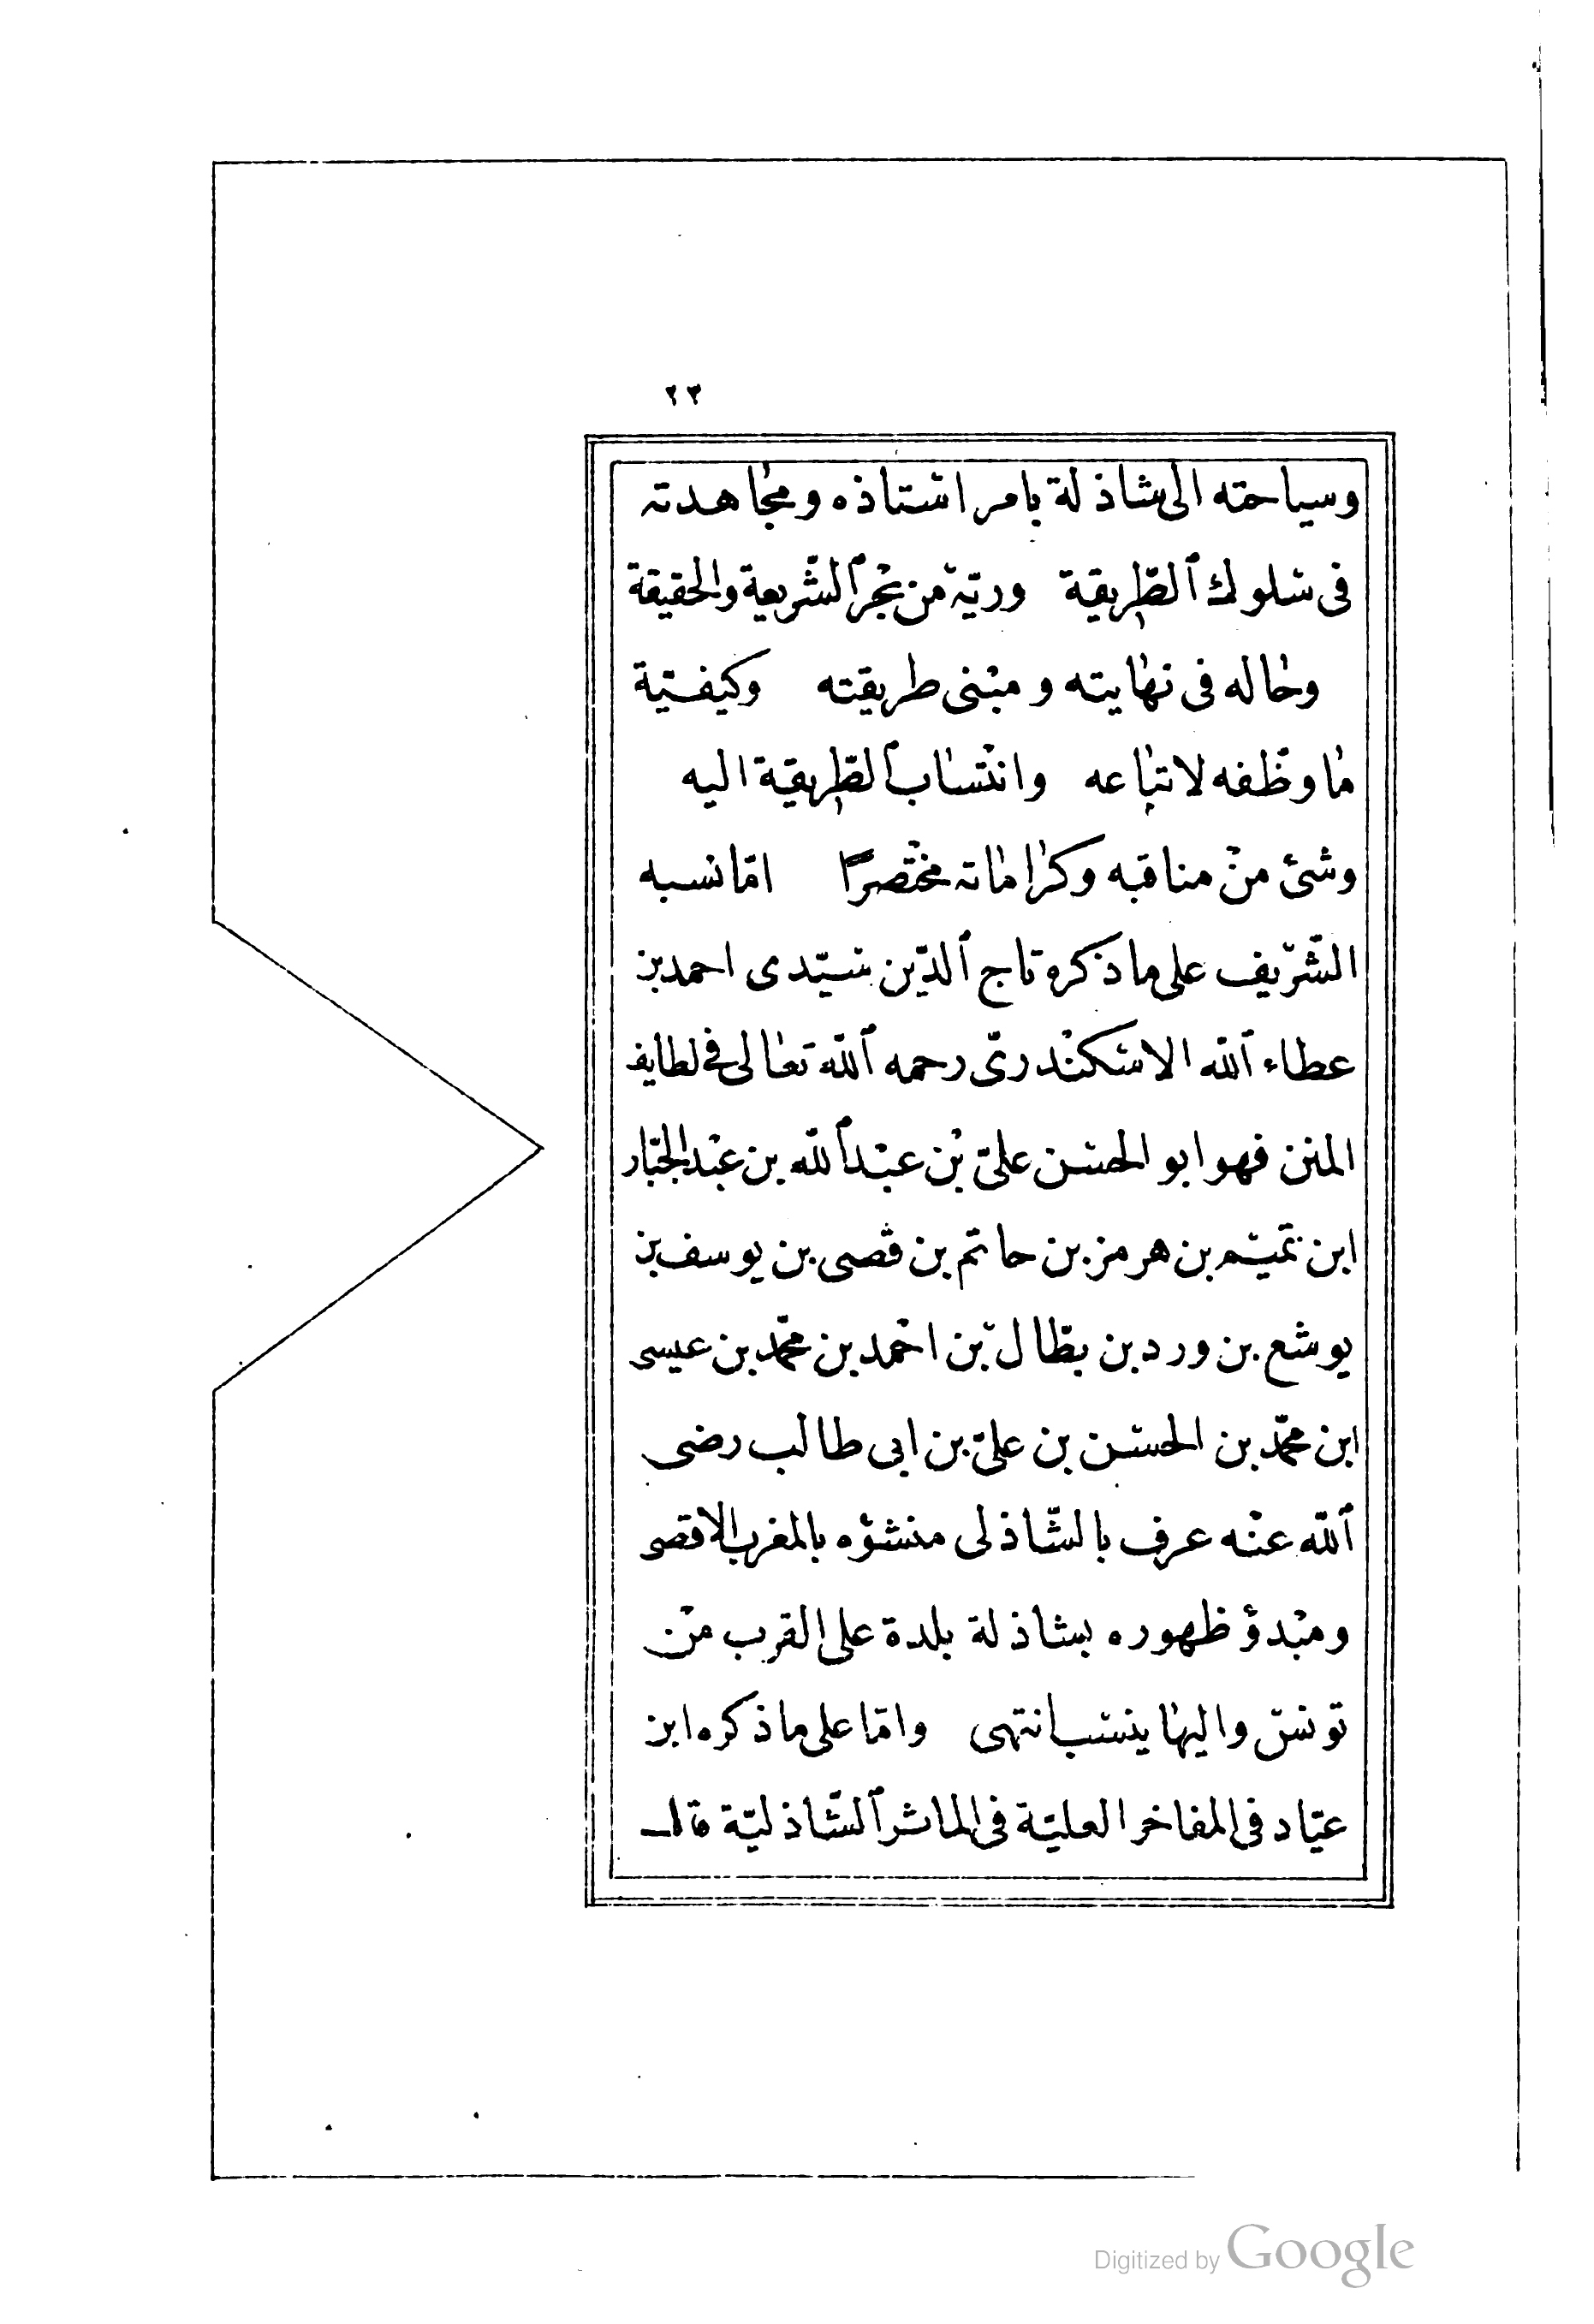 ٢٣
وسياحته الى شاذلة بامر استاذه ومجاهدته
فى سلوك الطّريقة وريّه من بحر الشّريعة والحقيقة
وحاله فى نهايته ومبنى طريقته وكيفيّة
ما وظّفه لاتباعه وانتساب الطّريقة اليه
وشئ من مناقبه وكراماته مختصرًا امّا نسبه
الشّريف على ما ذكره تاج الدّين سيّدى احمد بن
عطاء اللّه الاسكندرىّ رحمه اللّه تعالى فى لطايف
المنن فهو ابو الحسن علىّ بن عبد اللّه بن عبد الجبّار
ابن تميم بن هرمز بن حاتم بن قصى بن يوسف بن
يوشع بن ورد بن بطّال بن احمد بن محمّد بن عيسى
ابن محمّد بن الحسن بن علىّ بن ابى طالب رضى
اللّه عنه عرف بالشّاذلى منشؤه بالمغرب الاقصى
ومبدؤ ظهوره بشاذلة بلدة على القرب من
تونس واليها ينسب انتهى وامّا على ما ذكره ابن
عيّاد فى المفاخر العليّة فى الماثر الشّاذليّة قال
Digitized by Google